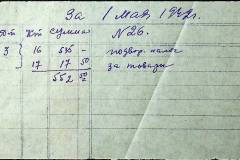 За 1 мая 1942г.
Кт сумма №26.
3 16 535 - подвор. налог
17 17 50 за товары
552 50